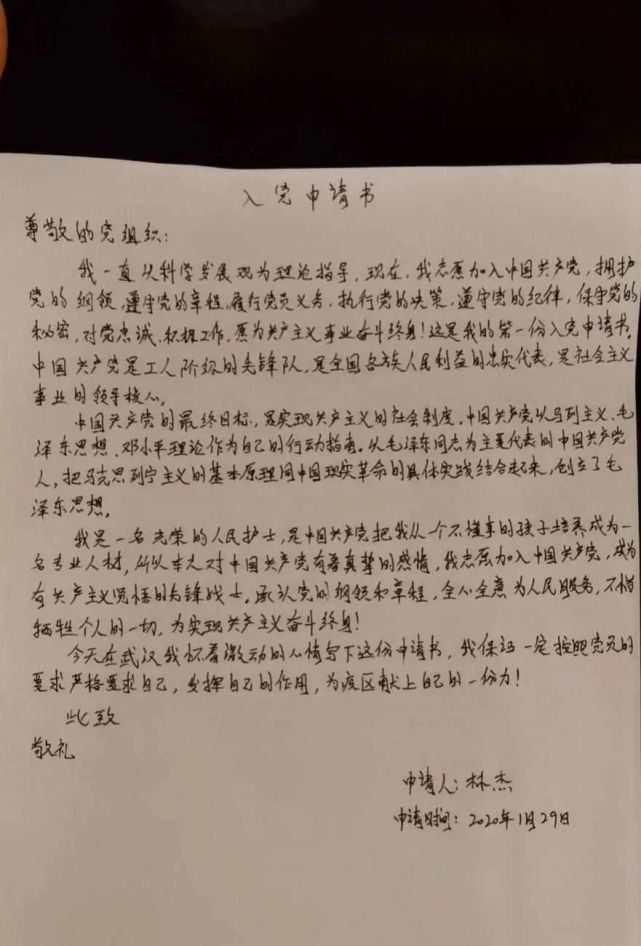 入党申请书
尊敬的党组织：
我一直从科学发展观为理论指导，现在，我志愿加入中国共产党，拥护
党的纲领，遵守党的章程，履行党员义务，执行党的决策，遵守党的纪律，保守党的
秘密，对党忠诚，积极工作，愿为共产主义事业奋斗终身！这是我的第一份入党申请书。
中国共产党是工人阶级的先锋队，是全国各族人民利益的忠实代表，是社会主义
事业的领导核心。
中国共产党的最终目标，是实现共产主义的社会制度。中国共产党以马列主义、毛
泽东思想、邓小平理论作为自己的行动指南。从毛泽东同志为主要代表的中国共产党
人，把马克思列宁主义的基本原理同中国现实革命的具体实践结合起来，创立了毛
泽东思想。
我是一名光荣的人民护士，是中国共产党把我从一个不懂事的孩子培养成为一
名专业人材，所以本人对中国共产党有着真挚的感情，我志愿加入中国共产党，成为
有共产主义觉悟的先锋战士。承认党的纲领和章程，全心全意为人民服务，不惜
牺牲个人的一切，为实现共产主义奋斗终身！
今天在武汉我怀着激动的心情写下这份申请书，我保证一定按照党员的
要求严格要求自己，发挥自己的作用，为疫区献上自己的一份力！
此致
敬礼
申请人：林杰
申请时间：2020年1月29日